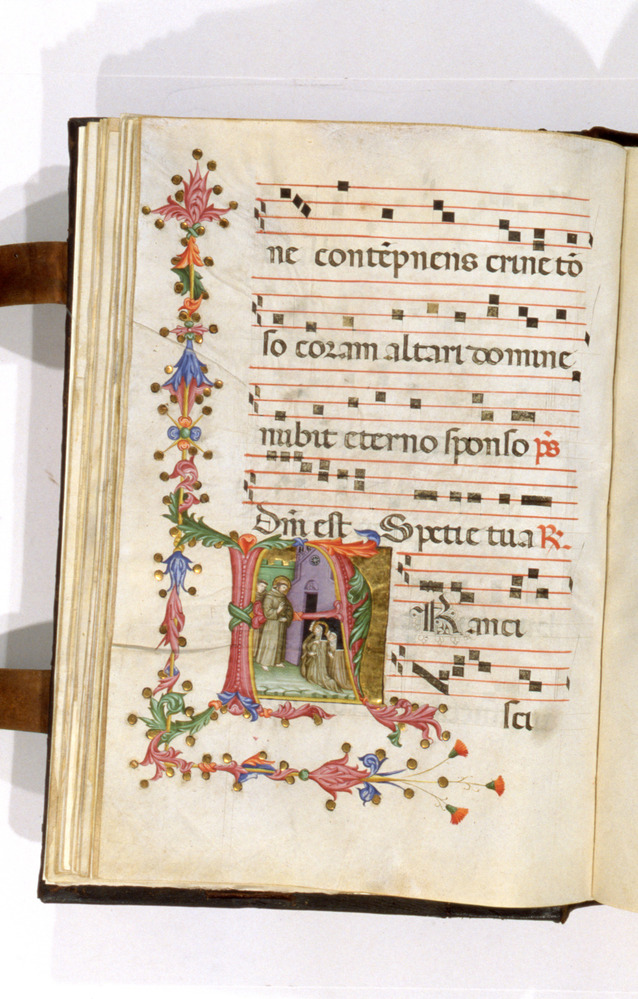 ne contẽpnens crine tõ
so coram altari domine
nubit eterno sponso p̃s
Dñi est Spetie tua R.
Ranci
sci